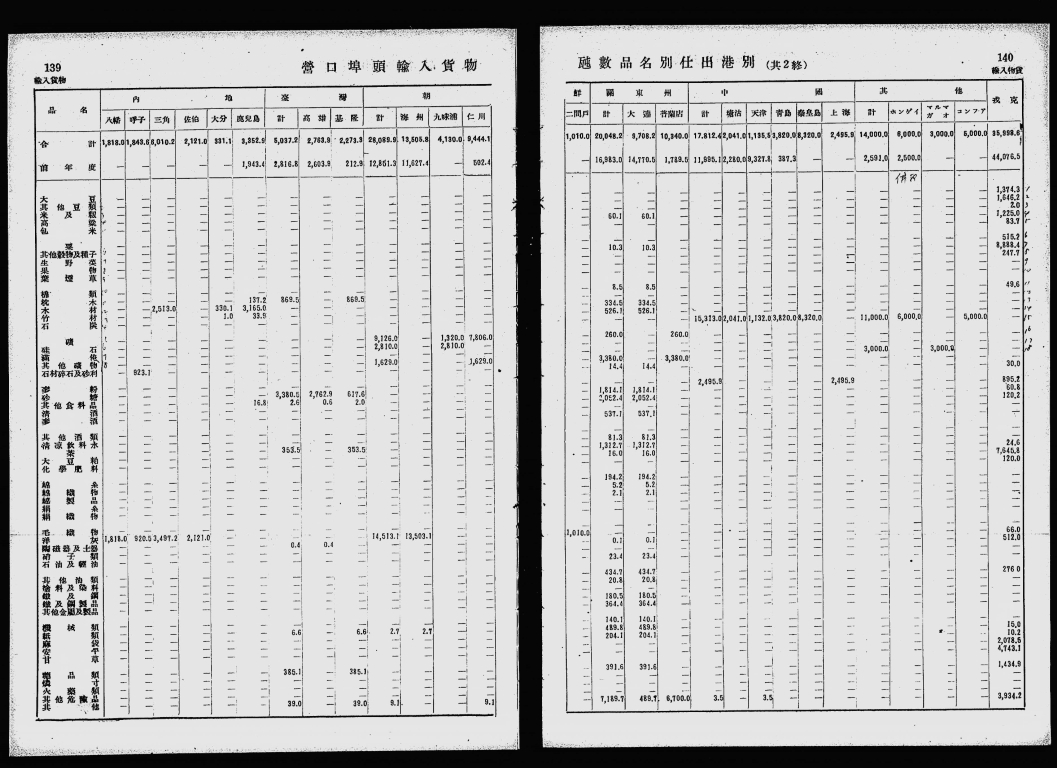 139
輸入貨物
營口埠頭輸入貨物
品名 內地 臺灣 朝
八幡 呼子 三角 佐伯 大分 鹿兒島 計 高雄 基隆 計 海州 九味浦 仁川
合計 1,818.0 1,843.6 6,010.2 2,121.0 331.1 3,352.9 5,037.2 2,763.9 2,273.3 28,089.9 13,505.8 4,130.0 9,444.1
前年度 — — — — — 1,943.4 2,816.8 2,603.9 212.9 12,851.3 11,627.4 — 502.4
大豆
其他豆類
米及籾
高粱
包米
粟
其他穀物及種子
生野菜
果物
葉煙草
棉類
枕木 137.2 869.5 869.5
木材 2,513.0 330.1 3,165.0
竹材 1.0 33.9
石炭
礦 9,126.0 1,320.0 7,806.0
硅石 2,810.0 2,810.0
滿俺
其他礦物 1,629.0 1,629.0
石材碎石及砂利 923.1
麥粉
砂糖 3,380.5 2,762.9 617.6
其他食料品 16.8 2.6 0.6 2.0
清酒
麥酒
其他酒類
清涼飲料水
茶 353.5 353.5
大豆粕
化學肥料
綿糸
綿織物
綿製品
絹糸
絹織物
毛織物
洋灰 1,818.0 920.5 3,497.2 2,121.0 14,513.1 13,503.1
陶磁器及土器 0.4 0.4
硝子類
石油及礦油
其他油類
塗料及染料
鐵及鋼
鐵及鋼製品
其他金屬及製品
機械類
紙類 6.6 6.6 2.7 2.7
麻袋
安平
甘草
藥品類 385.1 385.1
燐寸
火藥類
其他危險品
其他 39.0 39.0 9.1 9.1
140
輸入物貨
數品名別仕出港別 (共2終)
鮮 關東州 中國 其他 戎克
二間戶 計 大連 普蘭店 計 塘沽 天津 青島 秦皇島 上海 計 ホンゲイ マルマガオ コンフア
1,010.0 20,048.2 9,708.2 10,340.0 17,812.4 2,041.0 1,135.5 3,820.0 8,320.0 2,495.9 14,000.0 6,000.0 3,000.0 5,000.0 35,998.6
— 16,983.0 14,770.5 1,789.5 11,995.1 2,280.0 9,327.8 387.3 — — 2,591.0 2,500.0 — — 44,076.5
1,374.3
1,646.2
2.0
60.1 60.1 1,225.0
83.7
515.2
8,888.4
10.3 10.3 247.7
8.5 8.5 49.6
334.5 334.5
526.1 526.1
15,313.0 2,041.0 1,132.0 3,820.0 8,320.0 11,000.0 6,000.0 5,000.0
260.0 260.0
3,000.0 3,000.0
3,380.0 3,380.0
14.4 14.4 30.0
2,495.9 2,495.9 895.2
1,814.1 1,814.1 60.8
2,052.4 2,052.4 120.2
537.1 537.1
81.3 81.3
1,312.7 1,312.7 24.6
16.0 16.0 7,645.8
120.0
194.2 194.2
5.2 5.2
2.1 2.1
66.0
1,010.0 512.0
0.1 0.1
23.4 23.4
276.0
434.7 434.7
20.8 20.8
180.5 180.5
364.4 364.4
140.1 140.1
489.8 489.8 15.0
204.1 204.1 10.2
2,078.5
4,743.1
391.6 391.6 1,434.9
7,189.7 489.7 6,700.0 3.5 3.5 3,934.2